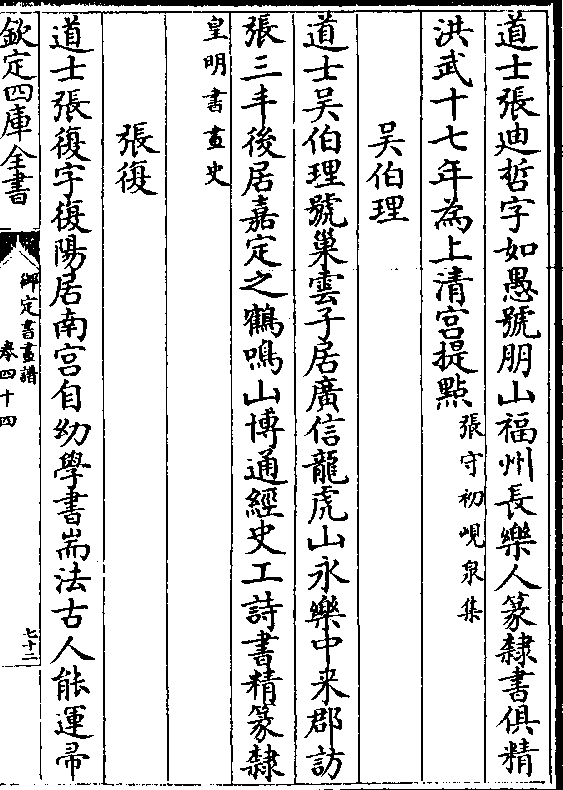 道士張迪哲字如愚號朋山福州長樂人篆隸書俱精
洪武十七年為上清宮提點張守初峴泉集
吴伯理
道士吴伯理號巢雲子居廣信龍虎山永樂中来郡訪
張三丰後居嘉定之鶴鳴山博通經史工詩書精篆隸
皇明書畫史
張復
道士張復字復陽居南宮自幼學書耑法古人能運帚
欽定四庫全書
御定書畫譜
卷四十四
七十二